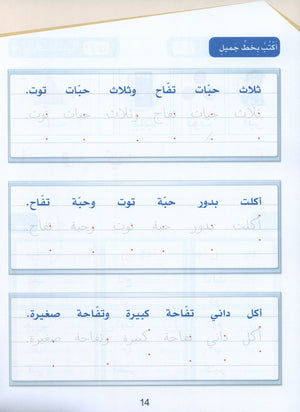 أكتب بخط جميل
ثلاث حبّات تفّاح وثلاث حبّات توت.
ثلاث حبات تفاح وثلاث حبات توت.
أكلت بدور حبّة توت وحبة تفّاح.
أكلت بدور حبة توت وحبة تفاح.
أكل داني تفّاحة كبيرة وتفّاحة صغيرة.
أكل داني تفاحة كبيرة وتفاحة صغيرة.
14